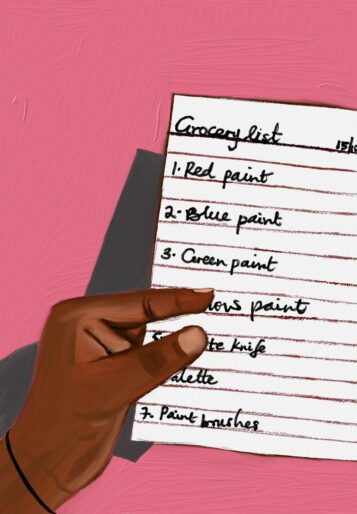 Grocery list
1. Red paint
2. Blue paint
3. Green paint
paint
knife
7. Paint brushes